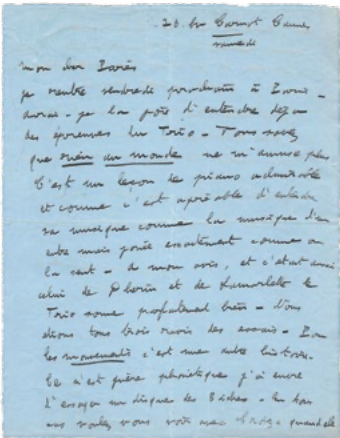 23. bd Carnot Cannes
samedi
mon cher
je rentre vendredi prochain à
j'ai la joie d'entendre déjà
des épreuves du Trio - Vous savez
que rien au monde ne m'amuse plus
C'est une leçon de piano admirable
et comme c'est agréable d'entendre
sa musique comme la musique d'un
autre mais jouée exactement comme on
la sent - à mon avis, et c'était aussi
celui de et de Lamorlette le
Trio sonne parfaitement bien - Nous
étions tous trois ravis des essais -
les mouvements c'est une autre histoire.
Ce n'est guère phonétique j'ai envie
d'essayer un disque des Biches - En tous
cas voulez vous voir avec quand elle